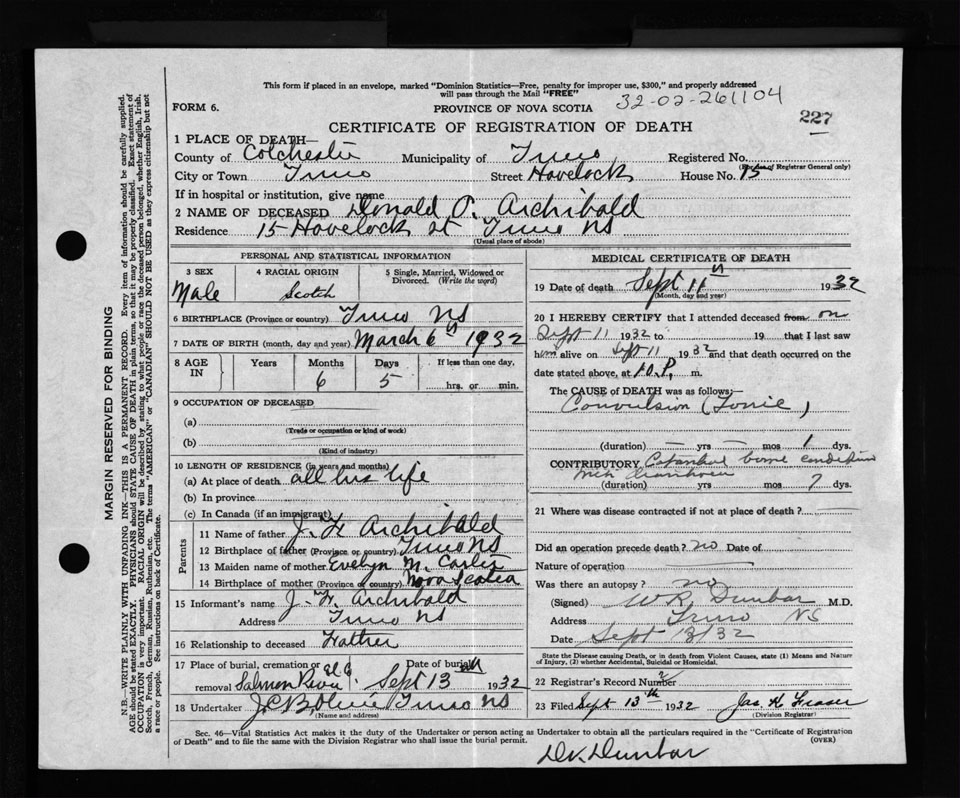 This form if placed in an envelope, marked "Dominion Statistics—Free, penalty for improper use, $300," and properly addressed
will pass through the Mail "FREE"
32-02-261104
FORM 6.
PROVINCE OF NOVA SCOTIA
227
CERTIFICATE OF REGISTRATION OF DEATH
1 PLACE OF DEATH—
County of Colchester Municipality of Truro Registered No.
(For use of Registrar General only)
City or Town Truro Street Havelock House No. 15
If in hospital or institution, give name
2 NAME OF DECEASED Donald O. Archibald
Residence 15 Havelock st Truro NS
(Usual place of abode)
PERSONAL AND STATISTICAL INFORMATION
3 SEX
Male
4 RACIAL ORIGIN
Scotch
5 Single, Married, Widowed or
Divorced. (Write the word)
6 BIRTHPLACE (Province or country) Truro NS
7 DATE OF BIRTH (month, day and year) March 6th 1932
8 AGE IN
Years Months Days If less than one day,
6 5 hrs. or min.
9 OCCUPATION OF DECEASED
(a)
(Trade or occupation or kind of work)
(b)
(Kind of industry)
10 LENGTH OF RESIDENCE (in years and months)
(a) At place of death all his life
(b) In province
(c) In Canada (if an immigrant)
Parents
11 Name of father J. F. Archibald
12 Birthplace of father (Province or country) Truro NS
13 Maiden name of mother Evelyn M. Carter
14 Birthplace of mother (Province or country) Nova Scotia
15 Informant's name J. F. Archibald
Address Truro NS
16 Relationship to deceased Father
17 Place of burial, cremation or Date of burial
removal Salmon River Sept 13 1932
18 Undertaker Truro NS
(Name and address)
MEDICAL CERTIFICATE OF DEATH
19 Date of death Sept 11th 1932
(Month, day and year)
20 I HEREBY CERTIFY that I attended deceased from on
Sept 11 1932 to 19 that I last saw
him alive on Sept 11, 1932 and that death occurred on the
date stated above, at P. m.
The CAUSE OF DEATH was as follows:—
Convulsion (Tonic)
(duration) — yrs — mos 1 dys.
CONTRIBUTORY condition
with Diarrhoea
(duration) yrs mos 7 dys.
21 Where was disease contracted if not at place of death?
Did an operation precede death? no Date of
Nature of operation
Was there an autopsy? no
(Signed) W R Dunbar M.D.
Address Truro NS
Date Sept 13/32
State the Disease causing Death, or in death from Violent Causes, state (1) Means and Nature
of Injury, (2) whether Accidental, Suicidal or Homicidal.
22 Registrar's Record Number
23 Filed Sept 13th 1932 Jas. H. Fraser
(Division Registrar)
Sec. 46—Vital Statistics Act makes it the duty of the Undertaker or person acting as Undertaker to obtain all the particulars required in the "Certificate of Registration
of Death" and to file the same with the Division Registrar who shall issue the burial permit. (OVER)
Dr. Dunbar
MARGIN RESERVED FOR BINDING
N.B.—WRITE PLAINLY WITH UNFADING INK—THIS IS A PERMANENT RECORD. Every item of information should be carefully supplied.
AGE should be stated EXACTLY. PHYSICIANS should STATE CAUSE OF DEATH in plain terms, so that it may be properly classified. Exact statement of
OCCUPATION is very important. RACIAL ORIGIN will be described by stating to what people or race the deceased person belonged, whether English, Irish,
Scotch, French, German, Russian, Ruthenian, etc. The terms "AMERICAN" or "CANADIAN" SHOULD NOT BE USED as they express citizenship but not
a race or people. See instructions on back of Certificate.